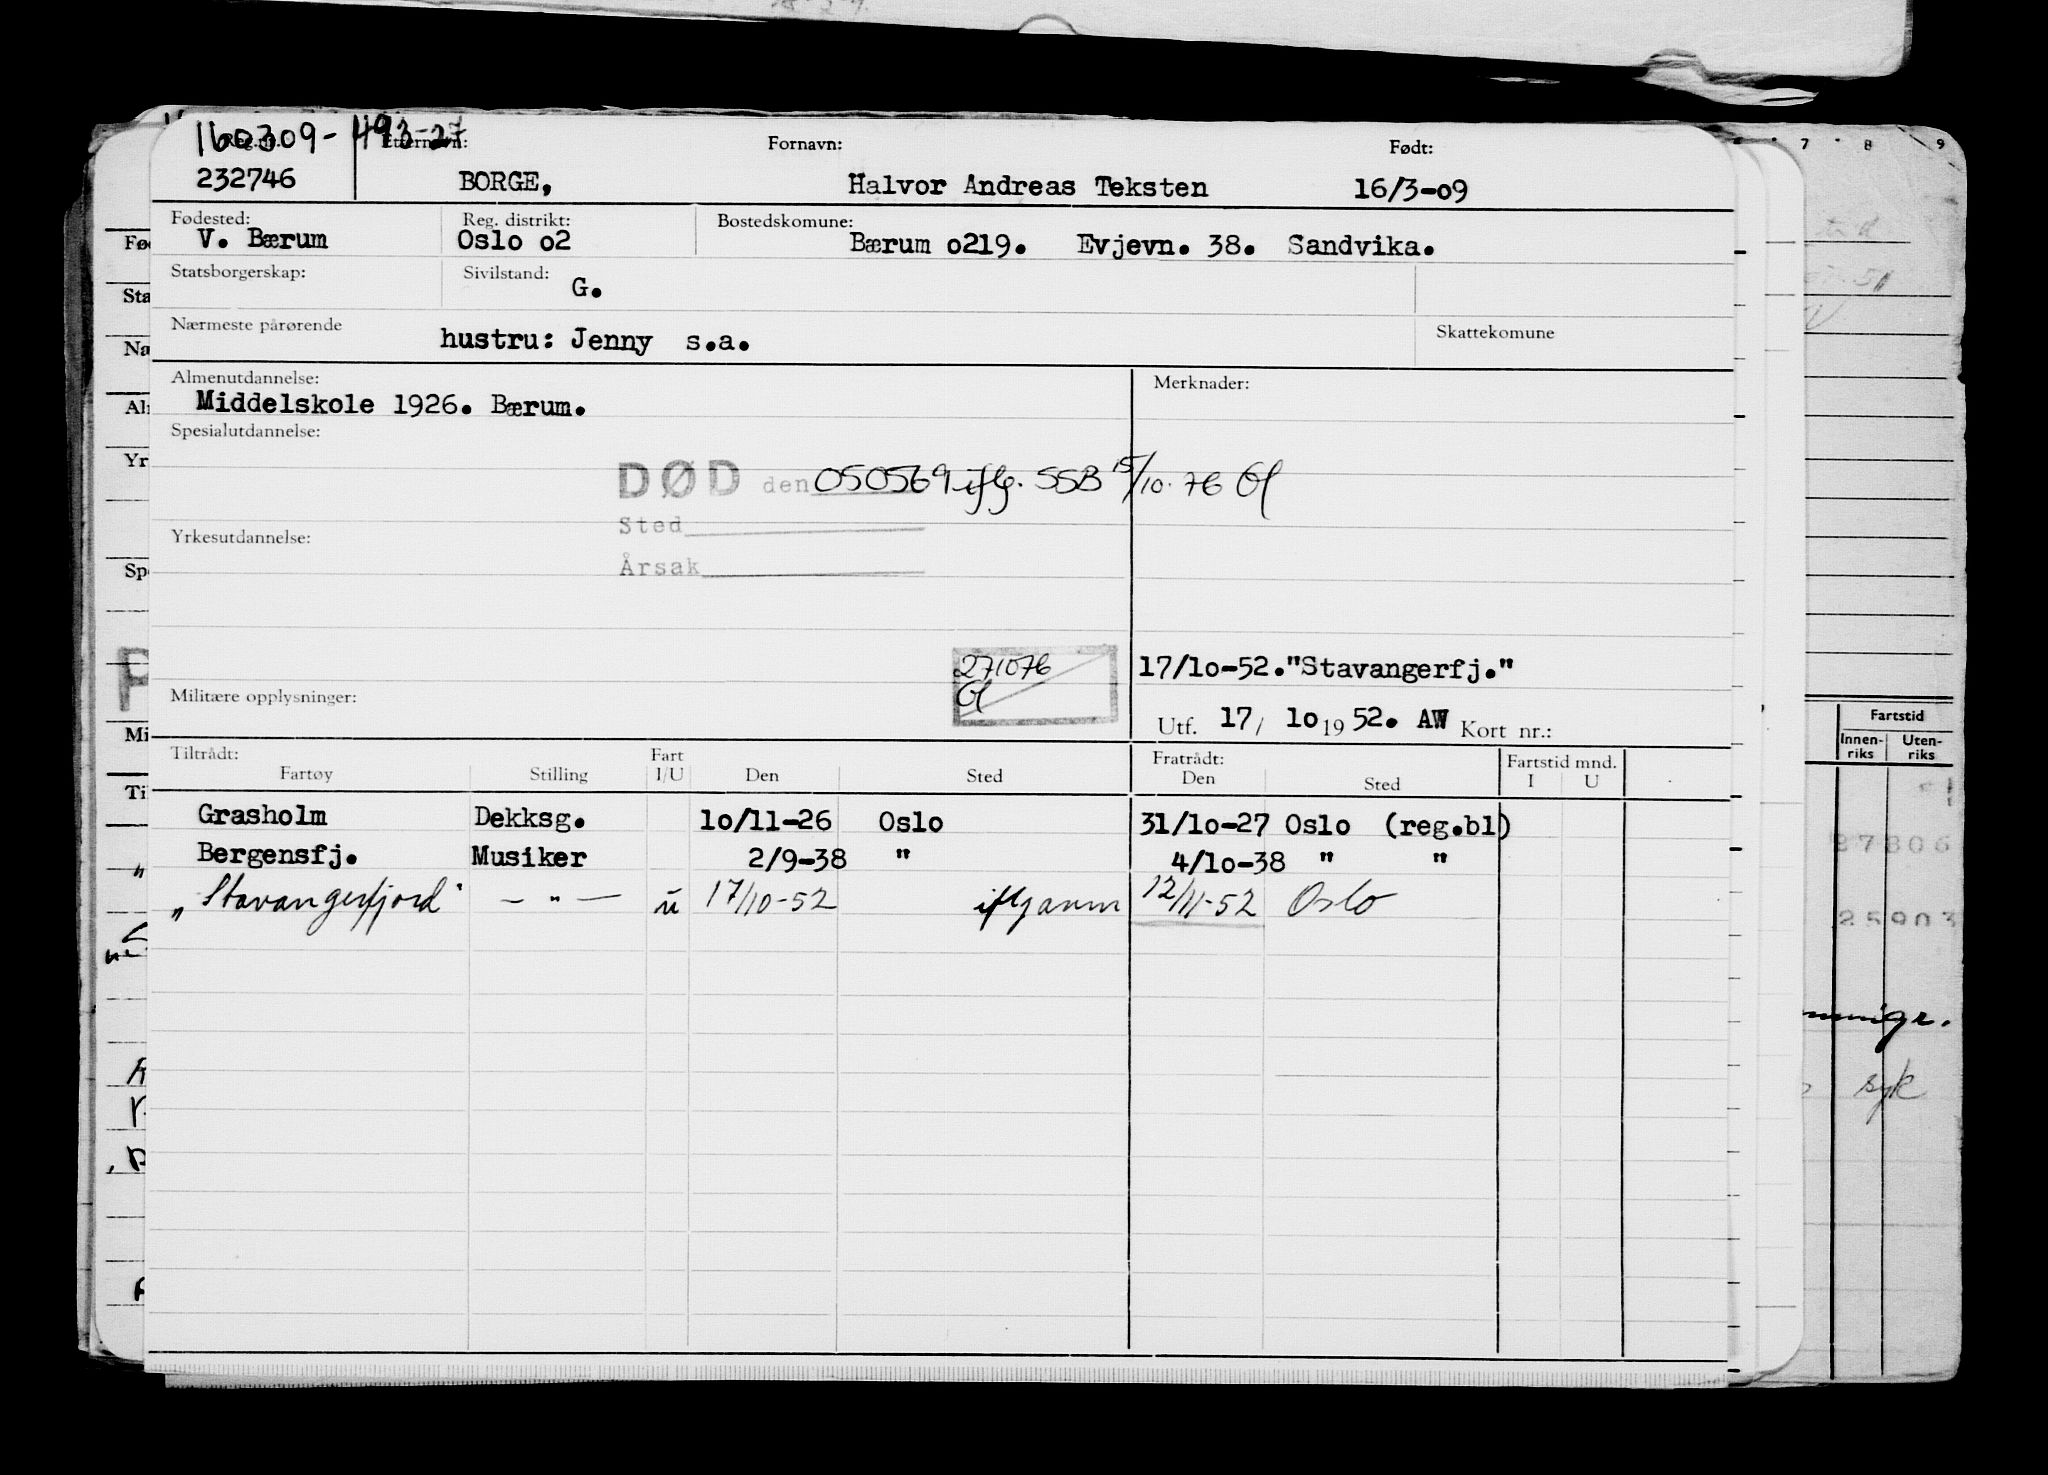 160309-49327
Etternavn: Fornavn: Født:
232746 BORGE, Halvor Andreas Teksten 16/3-o9
Fødested: Reg. distrikt: Bostedskomune:
V. Bærum Oslo o2 Bærum o219. Evjevn. 38. Sandvika.
Statsborgerskap: Sivilstand:
G.
Nærmeste pårørende Skattekomune
hustru: Jenny s.a.
Almenutdannelse: Merknader:
Middelskole 1926. Bærum.
Spesialutdannelse:
DØD den 050569 iflg. SSB 15/10.76
Sted
Yrkesutdannelse:
Årsak
271076
17/1o-52."Stavangerfj."
Militære opplysninger:
Utf. 17/ 1o 19 52. AW Kort nr.:
Tiltrådt: Fart Fratrådt: Fartstid mnd.
Fartøy Stilling I/U Den Sted Den Sted I U
Grasholm Dekksg. 1o/11-26 Oslo 31/1o-27 Oslo (reg.bl)
Bergensfj. Musiker 2/9-38 " 4/1o-38 " "
"Stavangerfjord" — " — u 17/10-52 12/11-52 Oslo
7 8 9
Fartstid
Innen-riks Uten-riks
27806
25903
syk